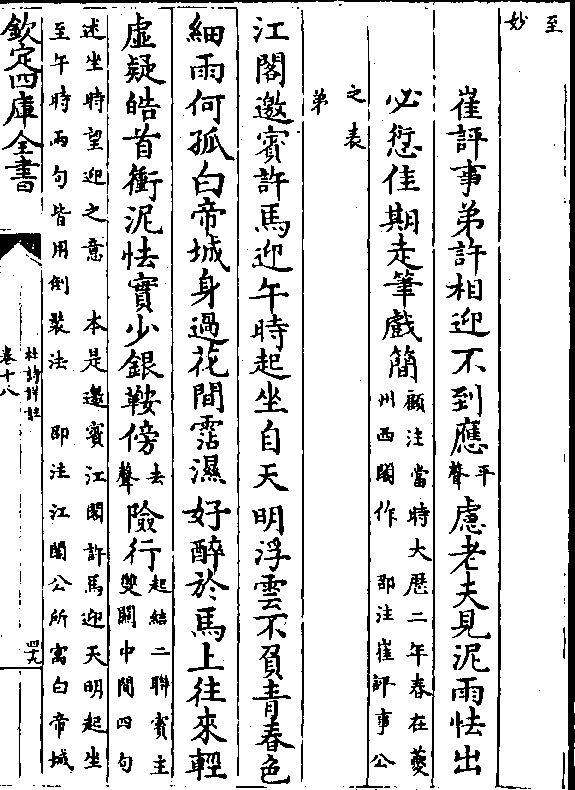 至
妙
崔評事弟許相迎不到應平聲慮老夫見泥雨怯出
必愆佳期走筆戲簡
顧注當時大歷二年春在夔
州西閣作　邵注崔評事公
之表
弟
江閣邀賓許馬迎午時起坐自天明浮雲不負青春色
細雨何孤白帝城身過花間霑濕好醉於馬上往來輕
虛疑皓首衝泥怯實少銀鞍傍去聲險行
起結二聯賓主
雙關中間四句
述坐時望迎之意　本是邀賓江閣許馬迎天明起坐
至午時兩句皆用倒裝法　邵注江閣公所寓白帝城
欽定四庫全書
杜詩詳註
卷十八
四九